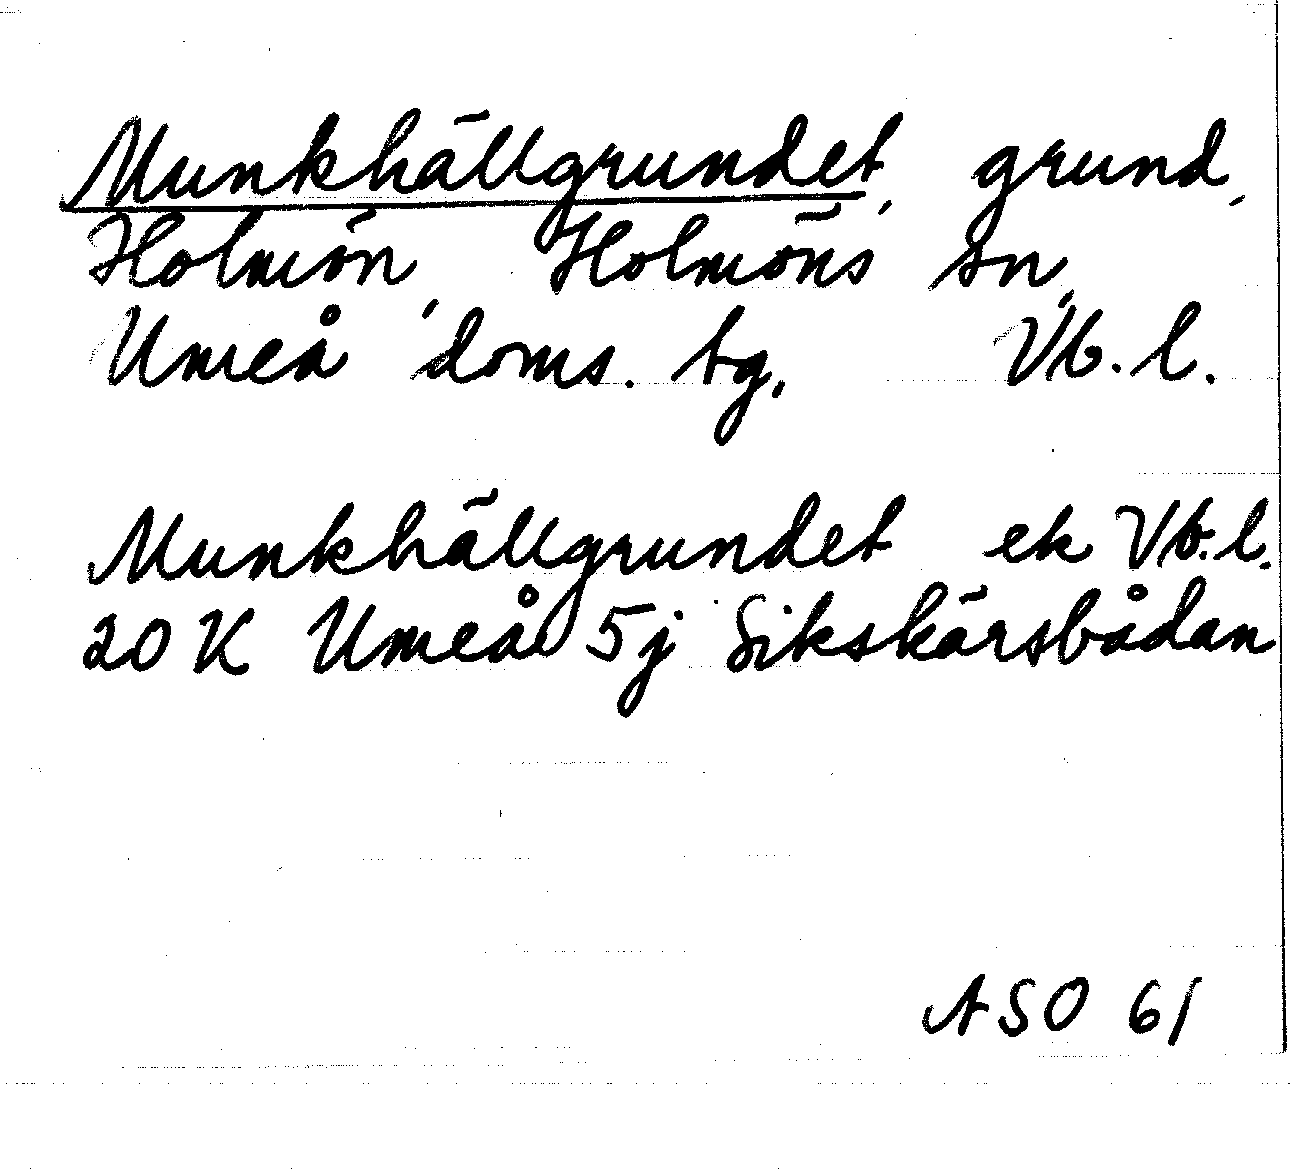 Munkhällgrundet, grund,
Holmön, Holmöns sn,
Umeå doms. tg, Vb. l.
Munkhällgrundet ek Vb. l.
20 K Umeå 5j Sikskärsbådan
ASO 61